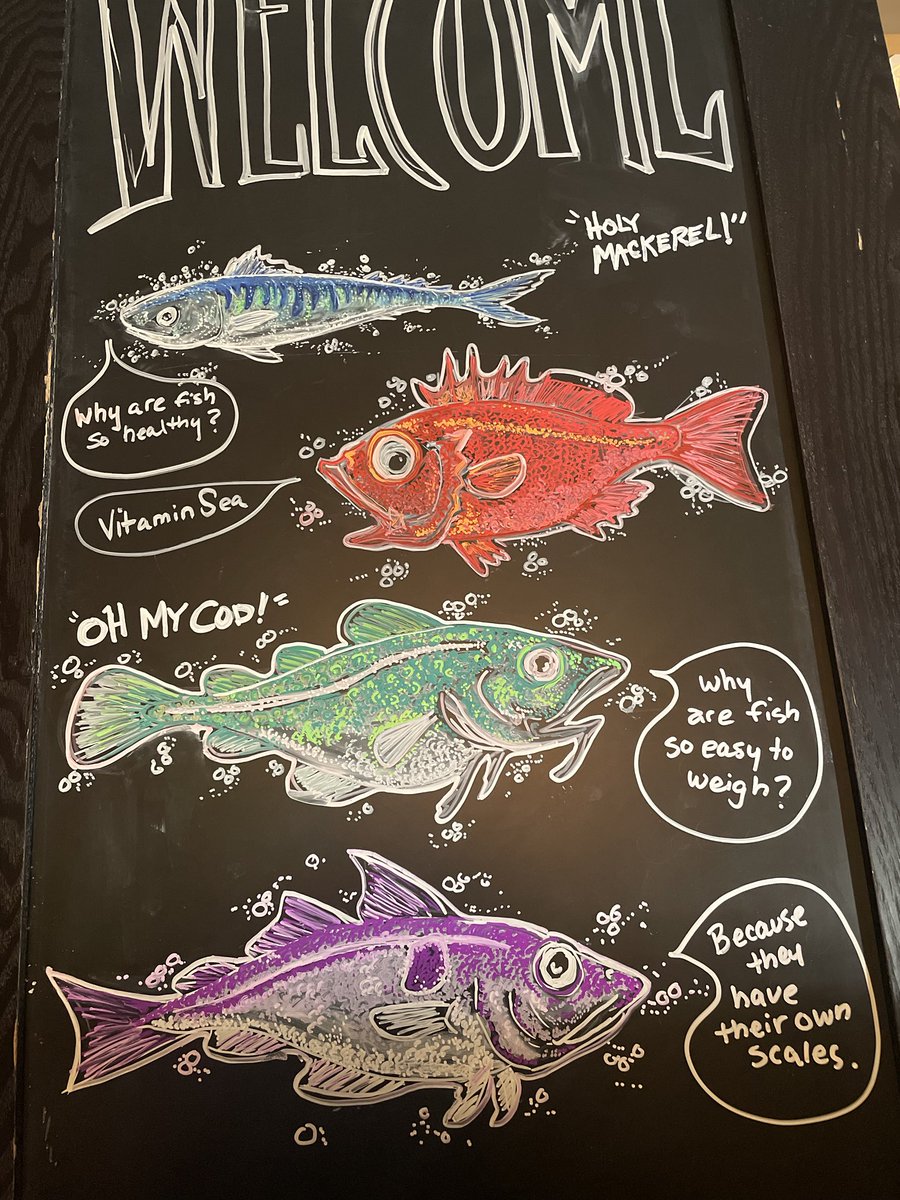 WELCOME
"HOLY
MACKEREL!"
Why are fish
so healthy?
Vitamin Sea
"OH MY COD!"
Why
are fish
so easy to
weigh?
Because
they
have
their own
scales.